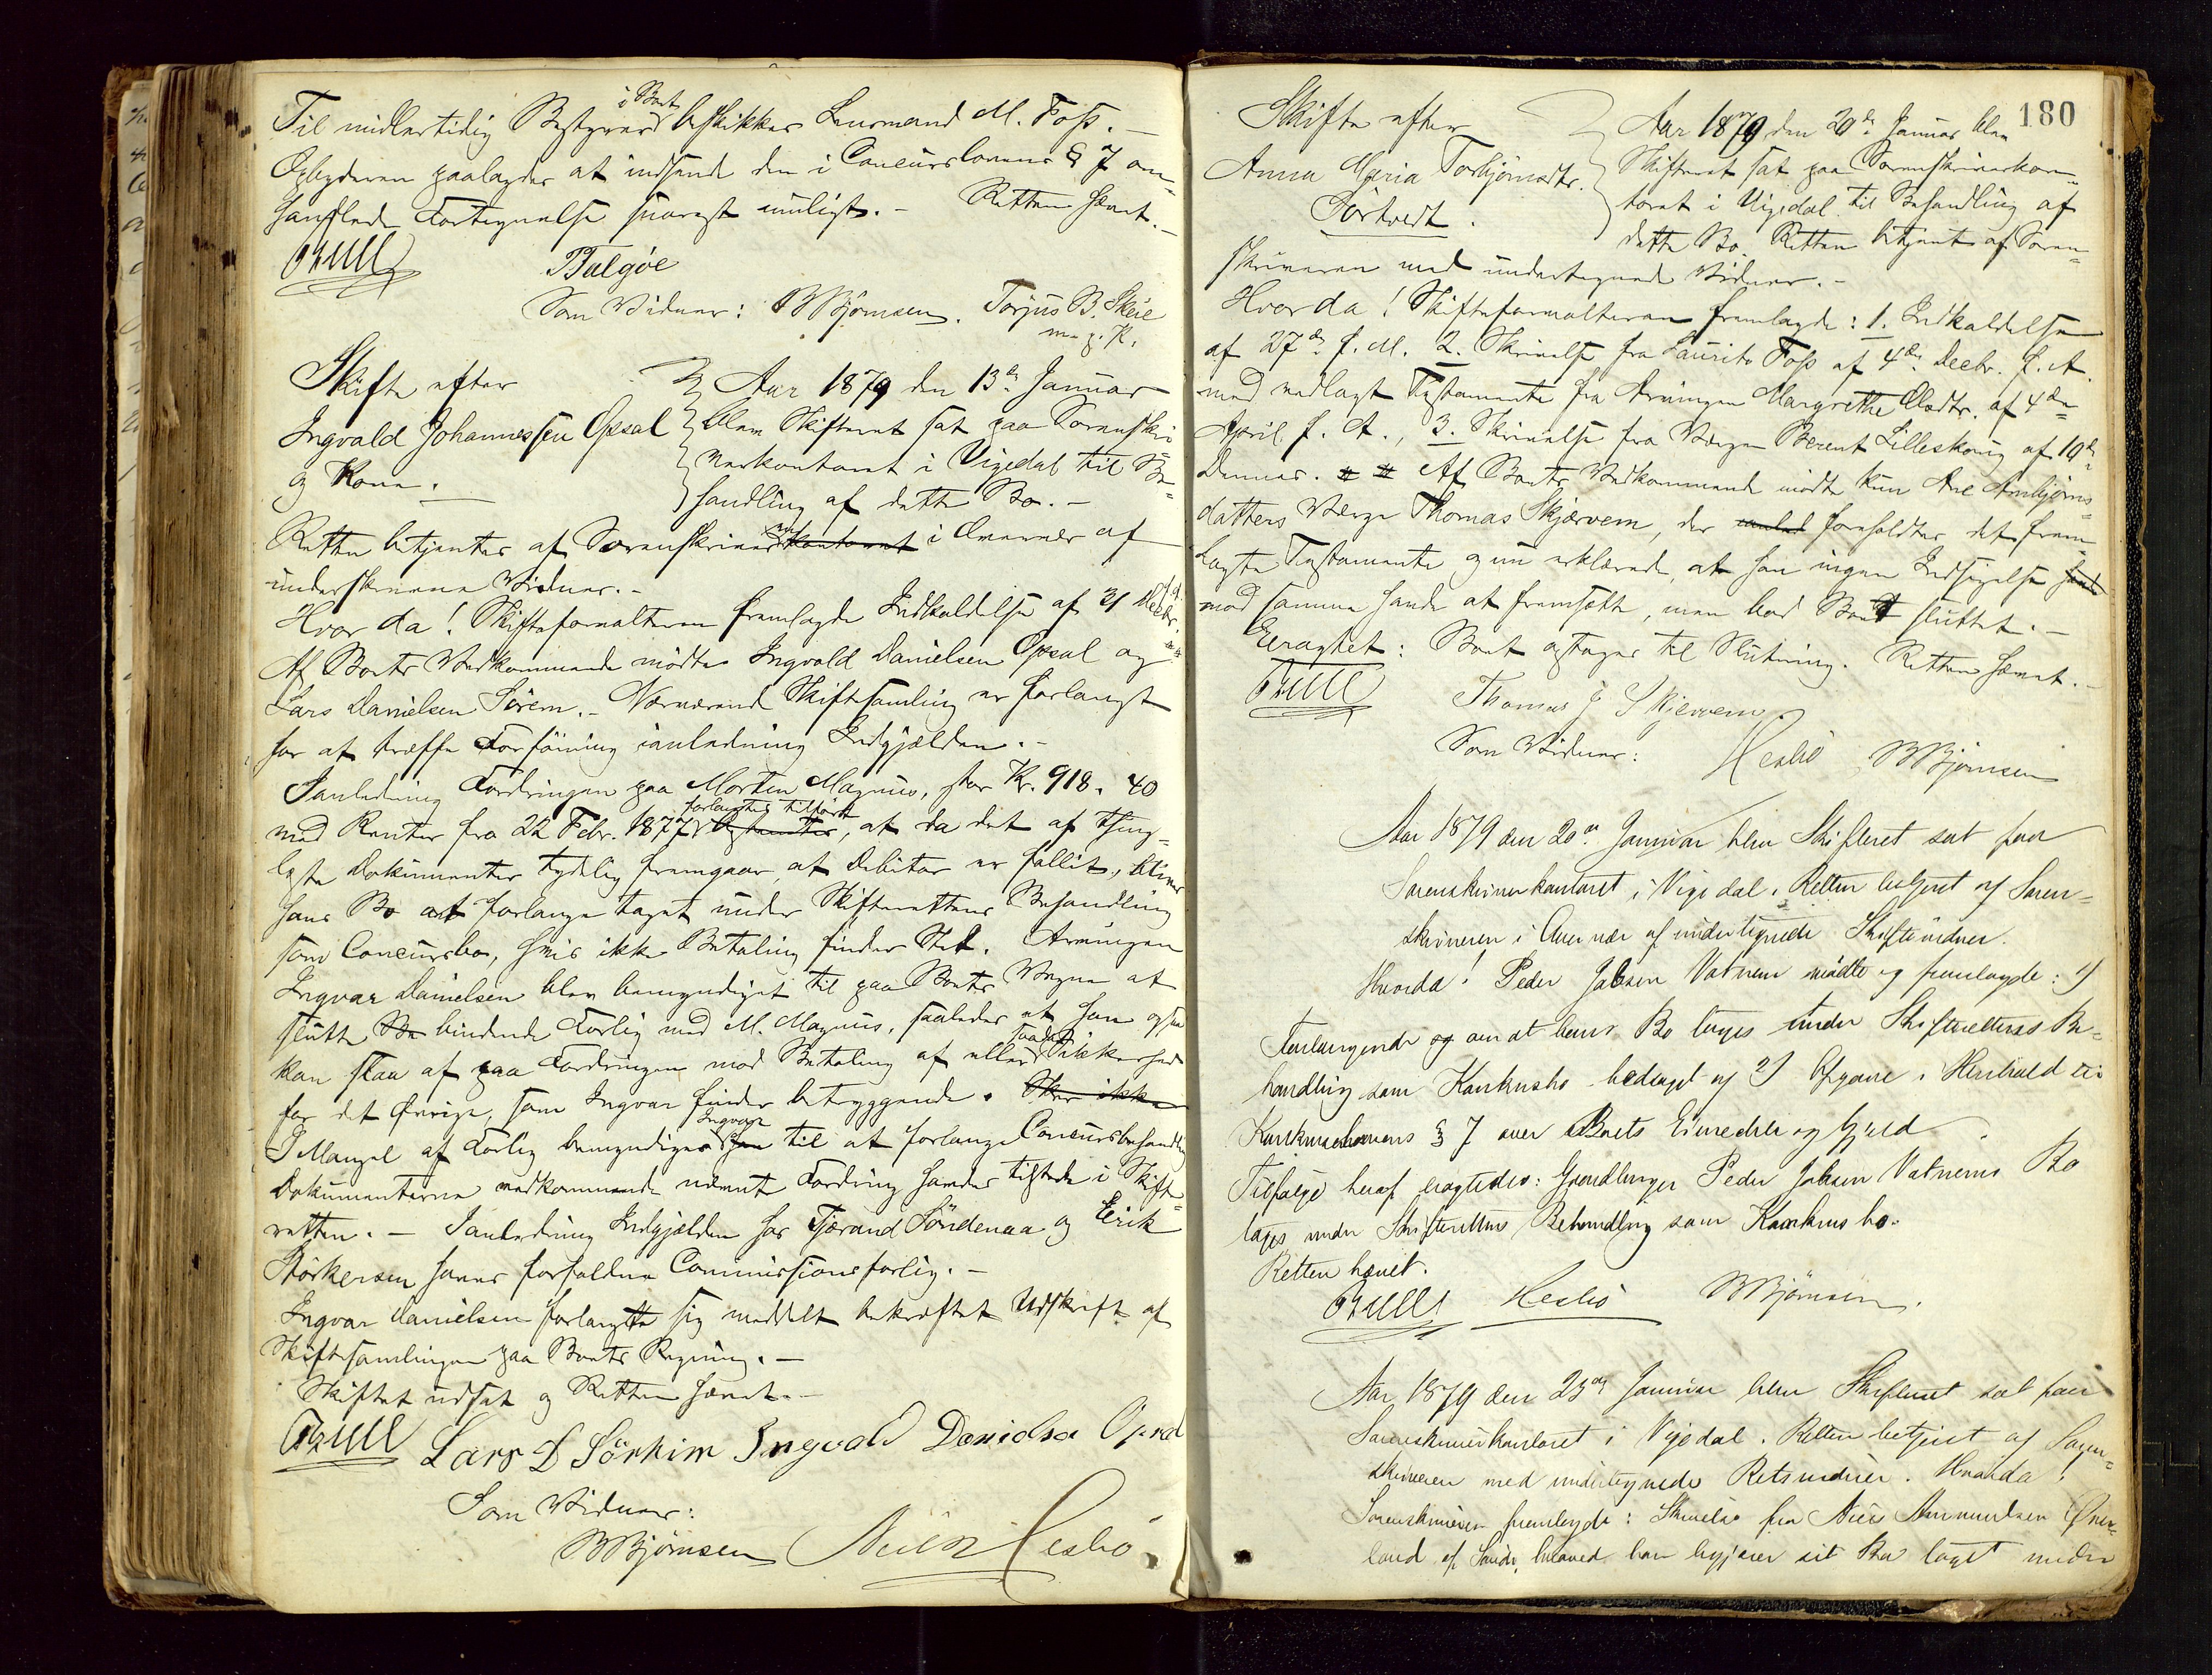 Til midlertidig Bestyrer i Boet beskikkes Lensmand M. Foss. –
Opbyderen paalagdes at indsende den i Concurslovens § 7 om-
handlede Fortegnelse snarest muligt. – Retten hævet. –
Bull Talgøe
Som Vidner: B Bjørnsen. Torjus B. Skeie
m. p. P.
Skifte efter
Ingvald Johannessen Opsal
og Kone.
Aar 1879 den 13de Januar
blev Skifteret sat paa Sorenskri-
verkontoret i Vigedal til Be-
handling af dette Bo. –
Retten betjentes af Sorenskriveren kontoret i Overvær af
underskrevne Vidner. –
Hvorda! Skifteforvalteren fremlagde Indkaldelse af 31 Decbr.
Af Boets Vedkommende mødte Ingvald Danielsen Opsal og
Lars Danielsen Sørem. – Nærværende Skiftesamling er forlangt
for at træffe Forføining i anledning Indgjælden. –
I anledning Fordringen paa Morten Magnus, stor Kr. 918. 40
med Renter fra 22 Febr. 1877 forlangtes tilført, at da det af thing-
læste Dokumenter tydelig fremgaar, at Debitor er fallit, bliver
hans Bo at forlange taget under Skifterettens Behandling
som Concursbo, hvis ikke Betaling finder Sted. Arvingen
Ingvar Danielsen blev bemyndiget til paa Boets Vegne at
slutte Bo bindende Forlig med M. Magnus, saaledes at han ogsaa
kan slaa af paa Fordringen mod Betaling af eller saadan Sikkerhed
for det Øvrige, som Ingvar finder betryggende. Sker ikke
I Mangel af Forlig bemyndiges Ingvar han til at forlange Concursbehandling
Dokumenterne vedkommende nævnte Fordring havdes tilstede i Skifte-
retten. – I anledning Indgjælden har Tjærand Søndenaa og Eirik
Størkersen hver forfaldne Commissionsforlig. –
Ingvar Danielsen forlangte sig meddelt bekræftet Udskrift af
Skiftesamlingen paa Boets Regning. –
Skiftet udsat og Retten hævet. –
Bull Lars D Sørhim Ingvald Danielsen Opsal
Som Vidner:
B Bjørnsen Neilsz Hesbø
180
Skifte efter
Anna Maria Torbjørnsdtr.
Tørtvedt.
Aar 1879 den 20de Januar blev
Skifteret sat paa Sorenskriverkon-
toret i Vigedal til Behandling af
dette Bo. Retten betjent af Soren-
skriveren med undertegnede Vidner. –
Hvorda! Skifteforvalteren fremlagde: 1. Indkaldelse
af 27de f. M. 2. Skrivelse fra Laurits Foss af 4de Decbr. f. A.
med vedlagt Testamente fra Arvingen Margrethe Olsdtr. af 4de
April f. A., 3. Skrivelse fra Værgen Berent Lilleskoug af 10de
dennes. Af Boets Vedkommende mødte kun Ane Arnbjørns-
datters Verge Thomas Skjærvem, der foreholdtes det frem-
lagte Testamente og nu erklærede, at han ingen Indsigelse havde
mod samme havde at fremsætte, men bad Boet sluttet. –
Eragtet: Boet optages til Slutning. Retten hævet. –
Bull Thomas J Skjervem
Som Vidner: Hesbø B Bjørnsen
Aar 1879 den 20de Januar blev Skifteret sat paa
Sorenskriverkontoret i Vigedal. Retten betjent af Soren-
skriveren i Overvær af undertegnede Skiftevidner.
Hvorda! Peder Jobsen Vatnem mødte og fremlagde: 1)
Forlangende og om at hans Bo tages under Skifterettens Be-
handling som Konkursbo bedagget og 2) Opgave i Henhold til
Konkurslovens § 7 over Boets Eiendele og Gjæld.
Tilfølge heraf eragtedes: Handlende Peder Jobsen Vatnems Bo
tages under Skifterettens Behandling som Konkursbo.
Retten hævet.
Bull Hesbø B Bjørnsen.
Aar 1879 den 23de Januar blev Skifteret sat paa
Sorenskriverkontoret i Vigedal. Retten betjent af Soren-
skriveren med undertegnede Retsvidner. Hvorda!
Sorenskriveren fremlagde: Skrivelse fra Nils Aanundsen Øver-
land af Sand, hvorved han begjærer sit Bo taget under